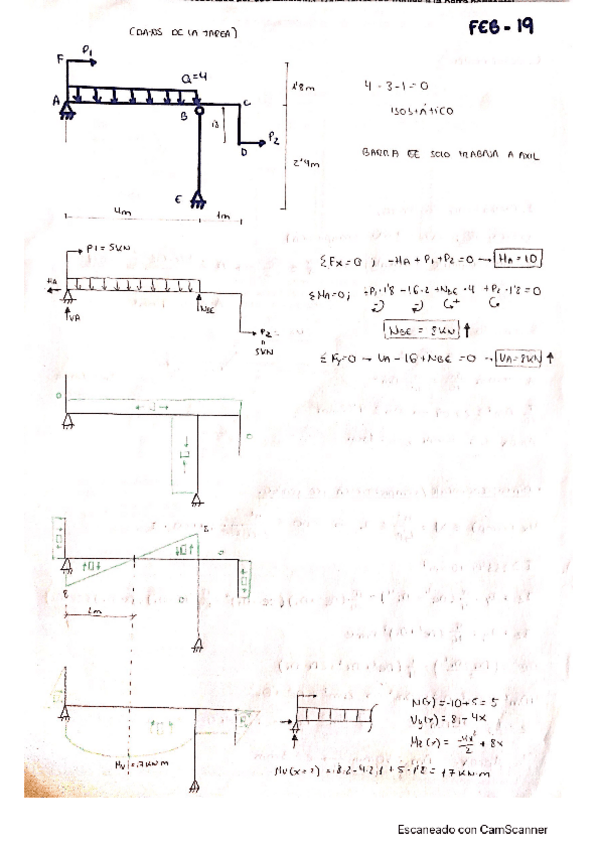 (DATOS DE LA TAREA)
FEB-19
F
P1
Q=4
A
B
C
1'8m
D
P2
2'4m
E
4m
1m
4-3-1=0
ISOSTÁTICO
BARRA BE SOLO TRABAJA A AXIL
P1=5KN
HA
VA
NBE
P2
=
5KN
ΣFx=0; -HA+P1+P2=0 → HA=10
ΣMA=0; -P1·1'8-16·2+NBE·4+P2·1'8=0
NBE=8KN ↑
ΣFy=0 → VA-16+NBE=0 → VA=8KN ↑
8
2m
N(x)=-10+5=5
Vy(x)=8-4x
Mz(x)= -4x²/2 + 8x
Escaneado con CamScanner